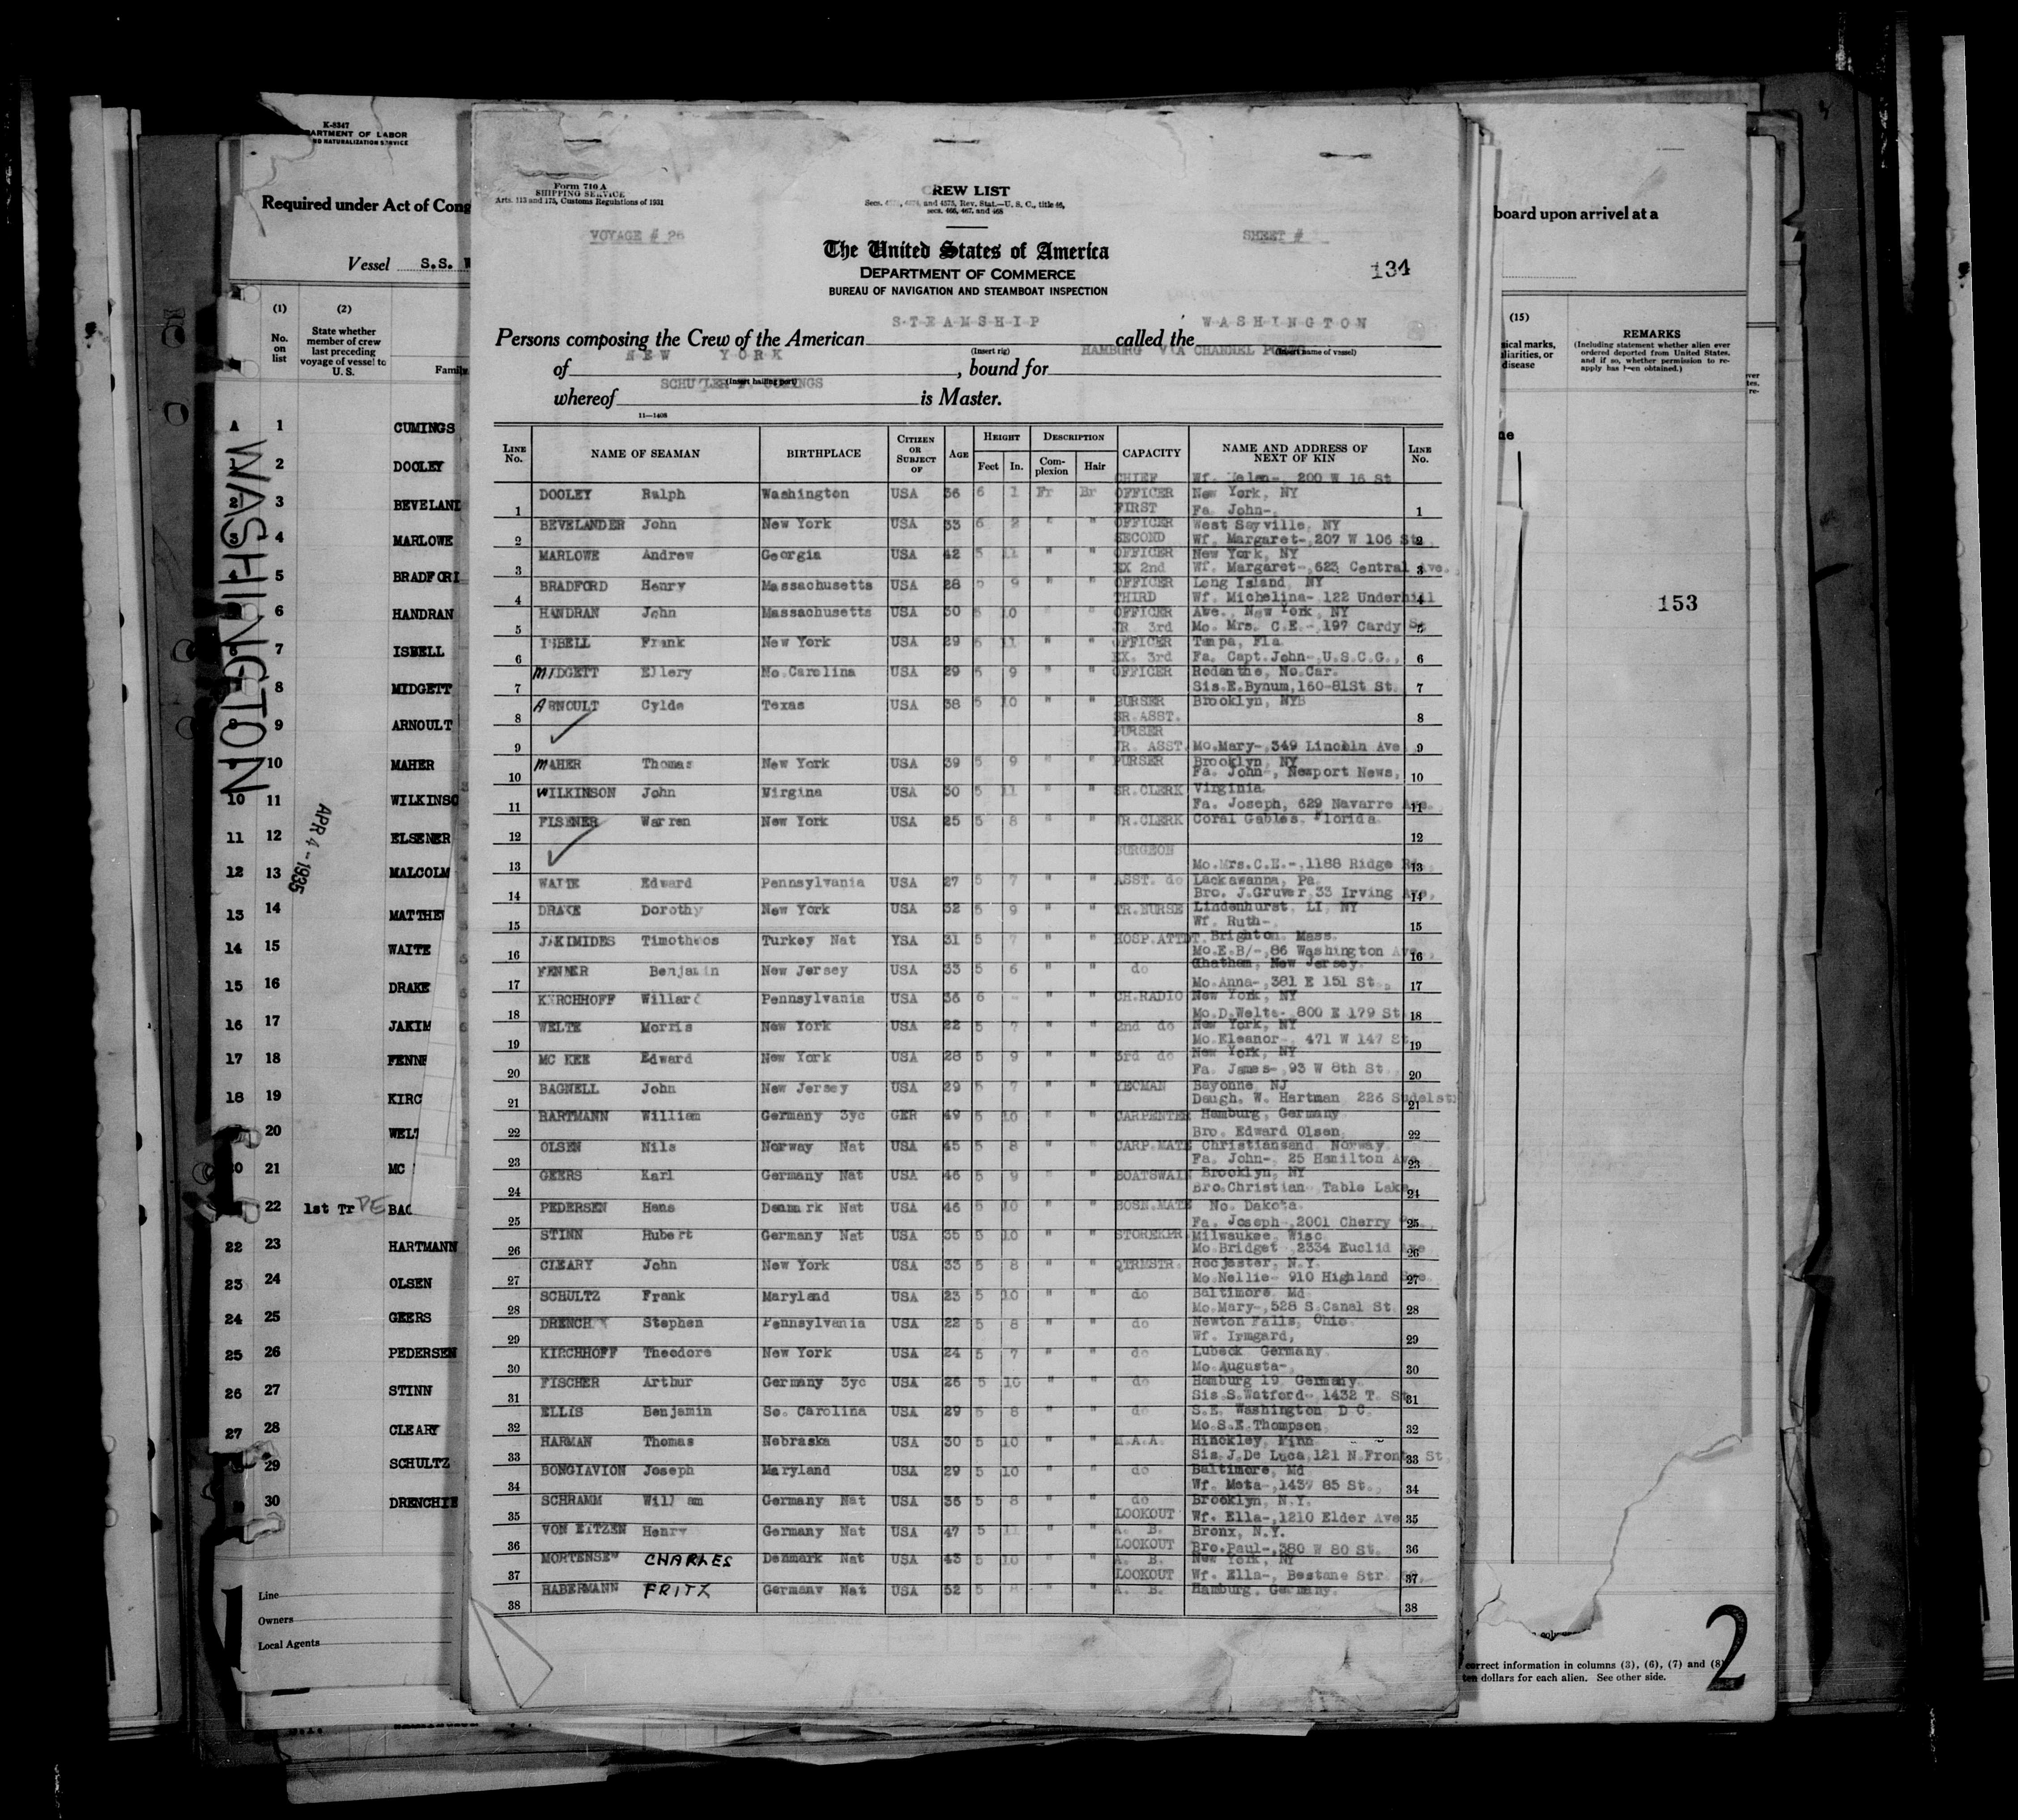 K-8347
ARTMENT OF LABOR
ND NATURALIZATION SERVICE
Required under Act of Cong
Vessel S.S. W
(1)
(2)
No. on list
State whether member of crew last preceding voyage of vessel to U. S.
Family
A 1 CUMINGS
2 DOOLEY
2 3 BEVELAND
3 4 MARLOWE
4 5 BRADFORD
6 HANDRAN
7 ISBELL
8 MIDGETT
9 ARNOULT
10 MAHER
10 11 WILKINSO
11 12 ELSENER
12 13 MALCOLM
13 14 MATTHE
14 15 WAITE
15 16 DRAKE
16 17 JAKIM
17 18 FENN
18 19 KIRC
20 WEL
20 21 MC
22 1st Tr DE BAG
22 23 HARTMANN
23 24 OLSEN
24 25 GEERS
25 26 PEDERSEN
26 27 STINN
27 28 CLEARY
29 SCHULTZ
30 DRENCHIE
WASHINGTON
APR 4 - 1935
Line
Owners
Local Agents
Form 710 A
SHIPPING SERVICE
Arts. 113 and 175, Customs Regulations of 1931
CREW LIST
Secs. 4574, and 4575, Rev. Stat.—U. S. C., title 46, secs. 466, 467, and 468
VOYAGE # 26
SHEET #
The United States of America
DEPARTMENT OF COMMERCE
BUREAU OF NAVIGATION AND STEAMBOAT INSPECTION
134
Persons composing the Crew of the American STEAMSHIP called the WASHINGTON
(Insert rig) (Insert name of vessel)
of NEW YORK, bound for HAMBURG VIA CHANNEL PORTS
(Insert hailing port)
whereof SCHUYLER F. CUMINGS is Master.
11—1408
LINE No. NAME OF SEAMAN BIRTHPLACE CITIZEN OR SUBJECT OF AGE HEIGHT Feet In. DESCRIPTION Complexion Hair CAPACITY NAME AND ADDRESS OF NEXT OF KIN LINE No.
CHIEF Wf. Helen-, 200 W 16 St
1 DOOLEY Ralph Washington USA 36 6 1 Fr Br OFFICER New York, NY 1
FIRST Fa. John-,
2 BEVELANDER John New York USA 33 6 2 " " OFFICER West Sayville, NY 2
SECOND Wf. Margaret-, 207 W 106 St.,
3 MARLOWE Andrew Georgia USA 42 5 11 " " OFFICER New York, NY 3
EX 2nd Wf. Margaret-, 623 Central Ave.
4 BRADFORD Henry Massachusetts USA 28 5 9 " " OFFICER Long Island, NY 4
THIRD Wf. Michelina- 122 Underhill
5 HANDRAN John Massachusetts USA 30 5 10 " " OFFICER Ave., New York, NY 5
JR. 3rd Mo. Mrs. C.E.-, 197 Cardy St
6 ISBELL Frank New York USA 29 5 11 " " OFFICER Tampa, Fla. 6
EX. 3rd Fa. Capt. John-, U.S.C.G.,
7 MIDGETT Ellery No. Carolina USA 29 5 9 " " OFFICER Rodanthe, No. Car. 7
Sis. E. Bynum, 160-81St St.
8 ARNOULT Cylde Texas USA 38 5 10 " " PURSER Brooklyn, NYB 8
SR. ASST.
9 PURSER 9
JR. ASST. Mo. Mary-, 349 Lincoln Ave
10 MAHER Thomas New York USA 39 5 9 " " PURSER Brooklyn, NY 10
Fa. John-, Newport News,
11 WILKINSON John Virgina USA 30 5 11 " " SR. CLERK Virginia. 11
Fa. Joseph, 629 Navarre Ave.
12 ELSENER Warren New York USA 25 5 8 " " JR. CLERK Coral Gables, Florida 12
13 SURGEON 13
Mo. Mrs. C.E.-, 1188 Ridge Rd.,
14 WAITE Edward Pennsylvania USA 27 5 7 " " ASST. do Lackawanna, Pa. 14
Bro. J. Gruver, 33 Irving Ave,
15 DRAKE Dorothy New York USA 32 5 9 " " TR. NURSE Lindenhurst, LI, NY 15
Wf. Ruth-,
16 JAKIMIDES Timotheos Turkey Nat YSA 31 5 7 " " HOSP. ATTDT. Brighton, Mass. 16
Mo. E.B/-, 86 Washington Ave.,
17 FENNER Benjamin New Jersey USA 33 5 6 " " do Chatham, New Jersey. 17
Mo. Anna-, 381 E 151 St.,
18 KIRCHHOFF Willard Pennsylvania USA 36 6 - " " CH. RADIO New York, NY 18
Mo. D. Welte- 800 E 179 St
19 WELTE Morris New York USA 22 5 7 " " 2nd do New York, NY 19
Mo. Eleanor-, 471 W 147 St
20 MC KEE Edward New York USA 28 5 9 " " 3rd do New York, NY 20
Fa. James-, 93 W 8th St.
21 BAGNELL John New Jersey USA 29 5 7 " " YEOMAN Bayonne, NJ 21
Daugh. W. Hartman 226 Sudelst.
22 HARTMANN William Germany 3yc GER 49 5 10 " " CARPENTER Hamburg, Germany 22
Bro. Edward Olsen,
23 OLSEN Nils Norway Nat USA 45 5 8 " " CARP. MATE Christiansand, Norway. 23
Fa. John-, 25 Hamilton Ave
24 GEERS Karl Germany Nat USA 46 5 9 " " BOATSWAIN Brooklyn, NY 24
Bro. Christian- Table Lake
25 PEDERSEN Hans Denmark Nat USA 46 5 10 " " BOSN. MATE No. Dakota. 25
Fa. Joseph-, 2001 Cherry
26 STINN Hubert Germany Nat USA 35 5 10 " " STOREKPR. Milwaukee, Wisc. 26
Mo. Bridget- 2334 Euclid Ave
27 CLEARY John New York USA 33 5 8 " " QTRMSTR. Rochester, N.Y. 27
Mo. Nellie- 910 Highland Ave.
28 SCHULTZ Frank Maryland USA 23 5 10 " " do Baltimore, Md. 28
Mo. Mary-, 528 S. Canal St.
29 DRENCH Stephen Pennsylvania USA 22 5 8 " " do Newton Falls, Ohio. 29
Wf. Irmgard,
30 KIRCHHOFF Theodore New York USA 24 5 7 " " do Lubeck Germany. 30
Mo. Augusta-,
31 FISCHER Arthur Germany 3yc USA 26 5 10 " " do Hamburg 19, Germany. 31
Sis. S. Watford- 1432 T. St
32 ELLIS Benjamin So. Carolina USA 29 5 8 " " do S.E. Washington, D.C. 32
Mo. S.E. Thompson,
33 HARMAN Thomas Nebraska USA 30 5 10 " " M.A.A. Hinckley, Minn 33
Sis. J. De Luca, 121 N. Front St,
34 BONGIAVION Joseph Maryland USA 29 5 10 " " do Baltimore, Md 34
Wf. Meta-, 1437 85 St.,
35 SCHRAMM William Germany Nat USA 36 5 8 " " do Brooklyn, N.Y. 35
LOOKOUT Wf. Ella-, 1210 Elder Ave
36 VON EITZEN Henry Germany Nat USA 47 5 11 " " A. B. Bronx, N.Y. 36
LOOKOUT Bro. Paul-, 380 W 80 St.
37 MORTENSEN CHARLES Denmark Nat USA 43 5 10 " " A. B. New York, NY 37
LOOKOUT Wf. Ella-, Bestane Str.
38 HABERMANN FRITZ Germany Nat USA 52 5 8 " " A. B. Hamburg, Germany. 38
board upon arrival at a
(15)
sical marks, uliarities, or disease
REMARKS
(Including statement whether alien ever ordered deported from United States, and if so, whether permission to reapply has been obtained.)
153
2
correct information in columns (3), (6), (7) and (8)
ten dollars for each alien. See other side.